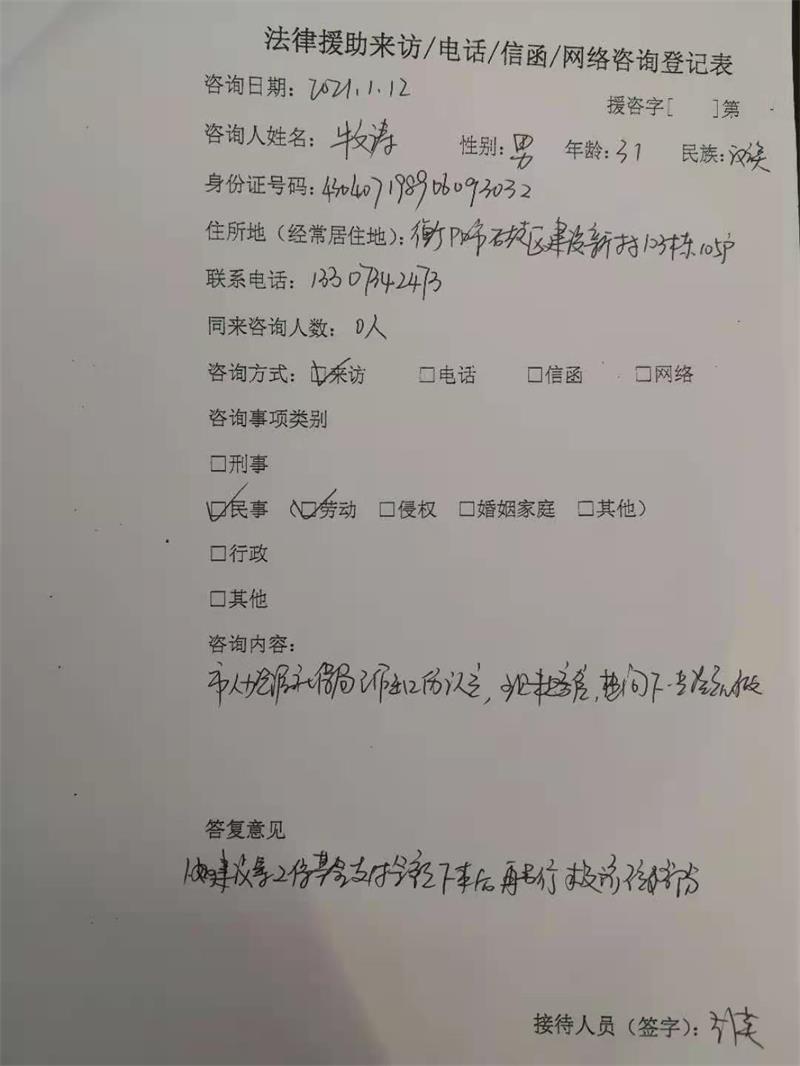 法律援助来访/电话/信函/网络咨询登记表
咨询日期: 2021.1.12
援咨字[ ]第
咨询人姓名: 牧涛 性别: 男 年龄: 31 民族: 汉族
身份证号码: 430407198906093032
住所地(经常居住地): 衡阳市石鼓区建设新村123栋105户
联系电话: 13307342473
同来咨询人数: 0人
咨询方式: ☑来访 □电话 □信函 □网络
咨询事项类别
□刑事
☑民事 (☑劳动 □侵权 □婚姻家庭 □其他)
□行政
□其他
咨询内容:
市人力资源社保局工伤认定,
答复意见
建议等工伤基金支付金额下来后再
接待人员(签字):